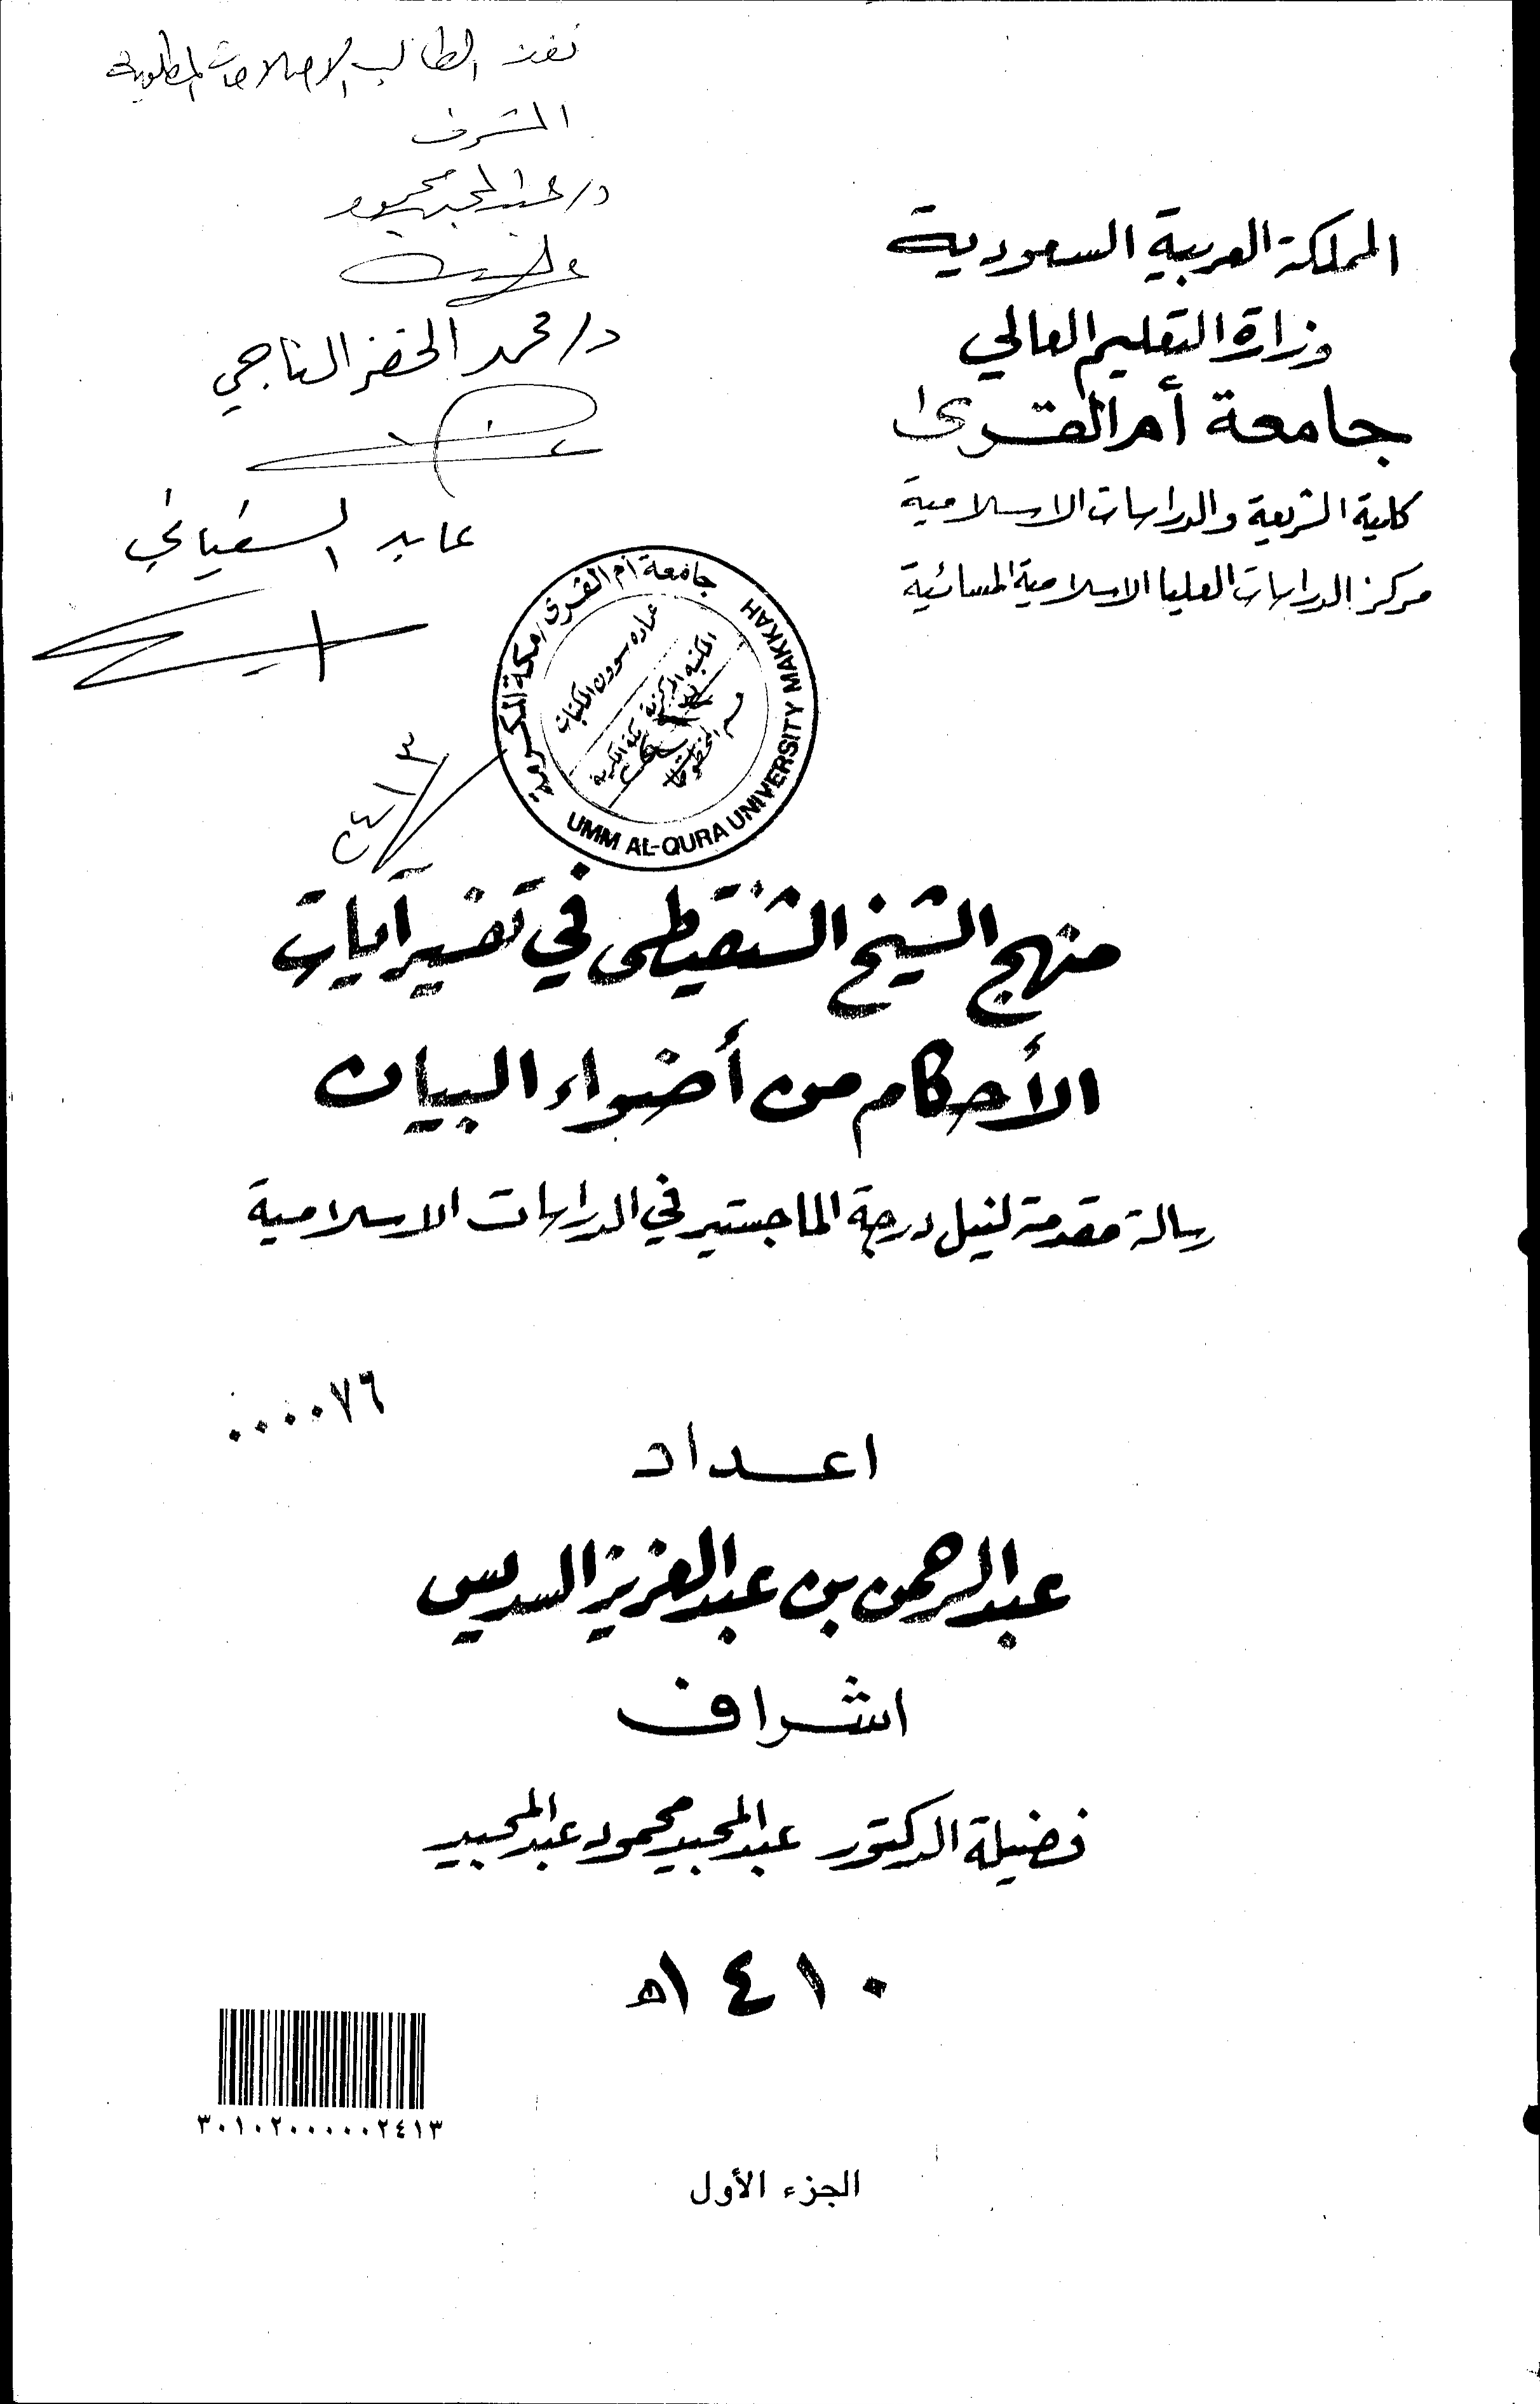 نفذ الطالب الاصلاحات المطلوبة
المشرف
د/ عبد المجيد محمود
د/ محمد الخضر الناجي
عابد السفياني
المملكة العربية السعودية
وزارة التعليم العالي
جامعة أم القرى
كلية الشريعة والدراسات الاسلامية
مركز الدراسات العليا الاسلامية المسائية
جامعة أم القرى / مكة المكرمة
UMM AL-QURA UNIVERSITY MAKKAH
عمادة شؤون المكتبات
المكتبة المركزية بمكة المكرمة
قسم المخطوطات
٢٤١٣
منهج الشيخ الشنقيطى في تفسير آيات
الأحكام من أضواء البيان
رسالة مقدمة لنيل درجة الماجستير في الدراسات الاسلامية
٠٠٠٠٧٦
اعداد
عبد الرحمن بن عبد العزيز السديس
اشراف
فضيلة الدكتور عبد المجيد محمود عبد المجيد
١٤١٠ه
٣٠١٠٢٠٠٠٠٠٢٤١٣
الجزء الأول